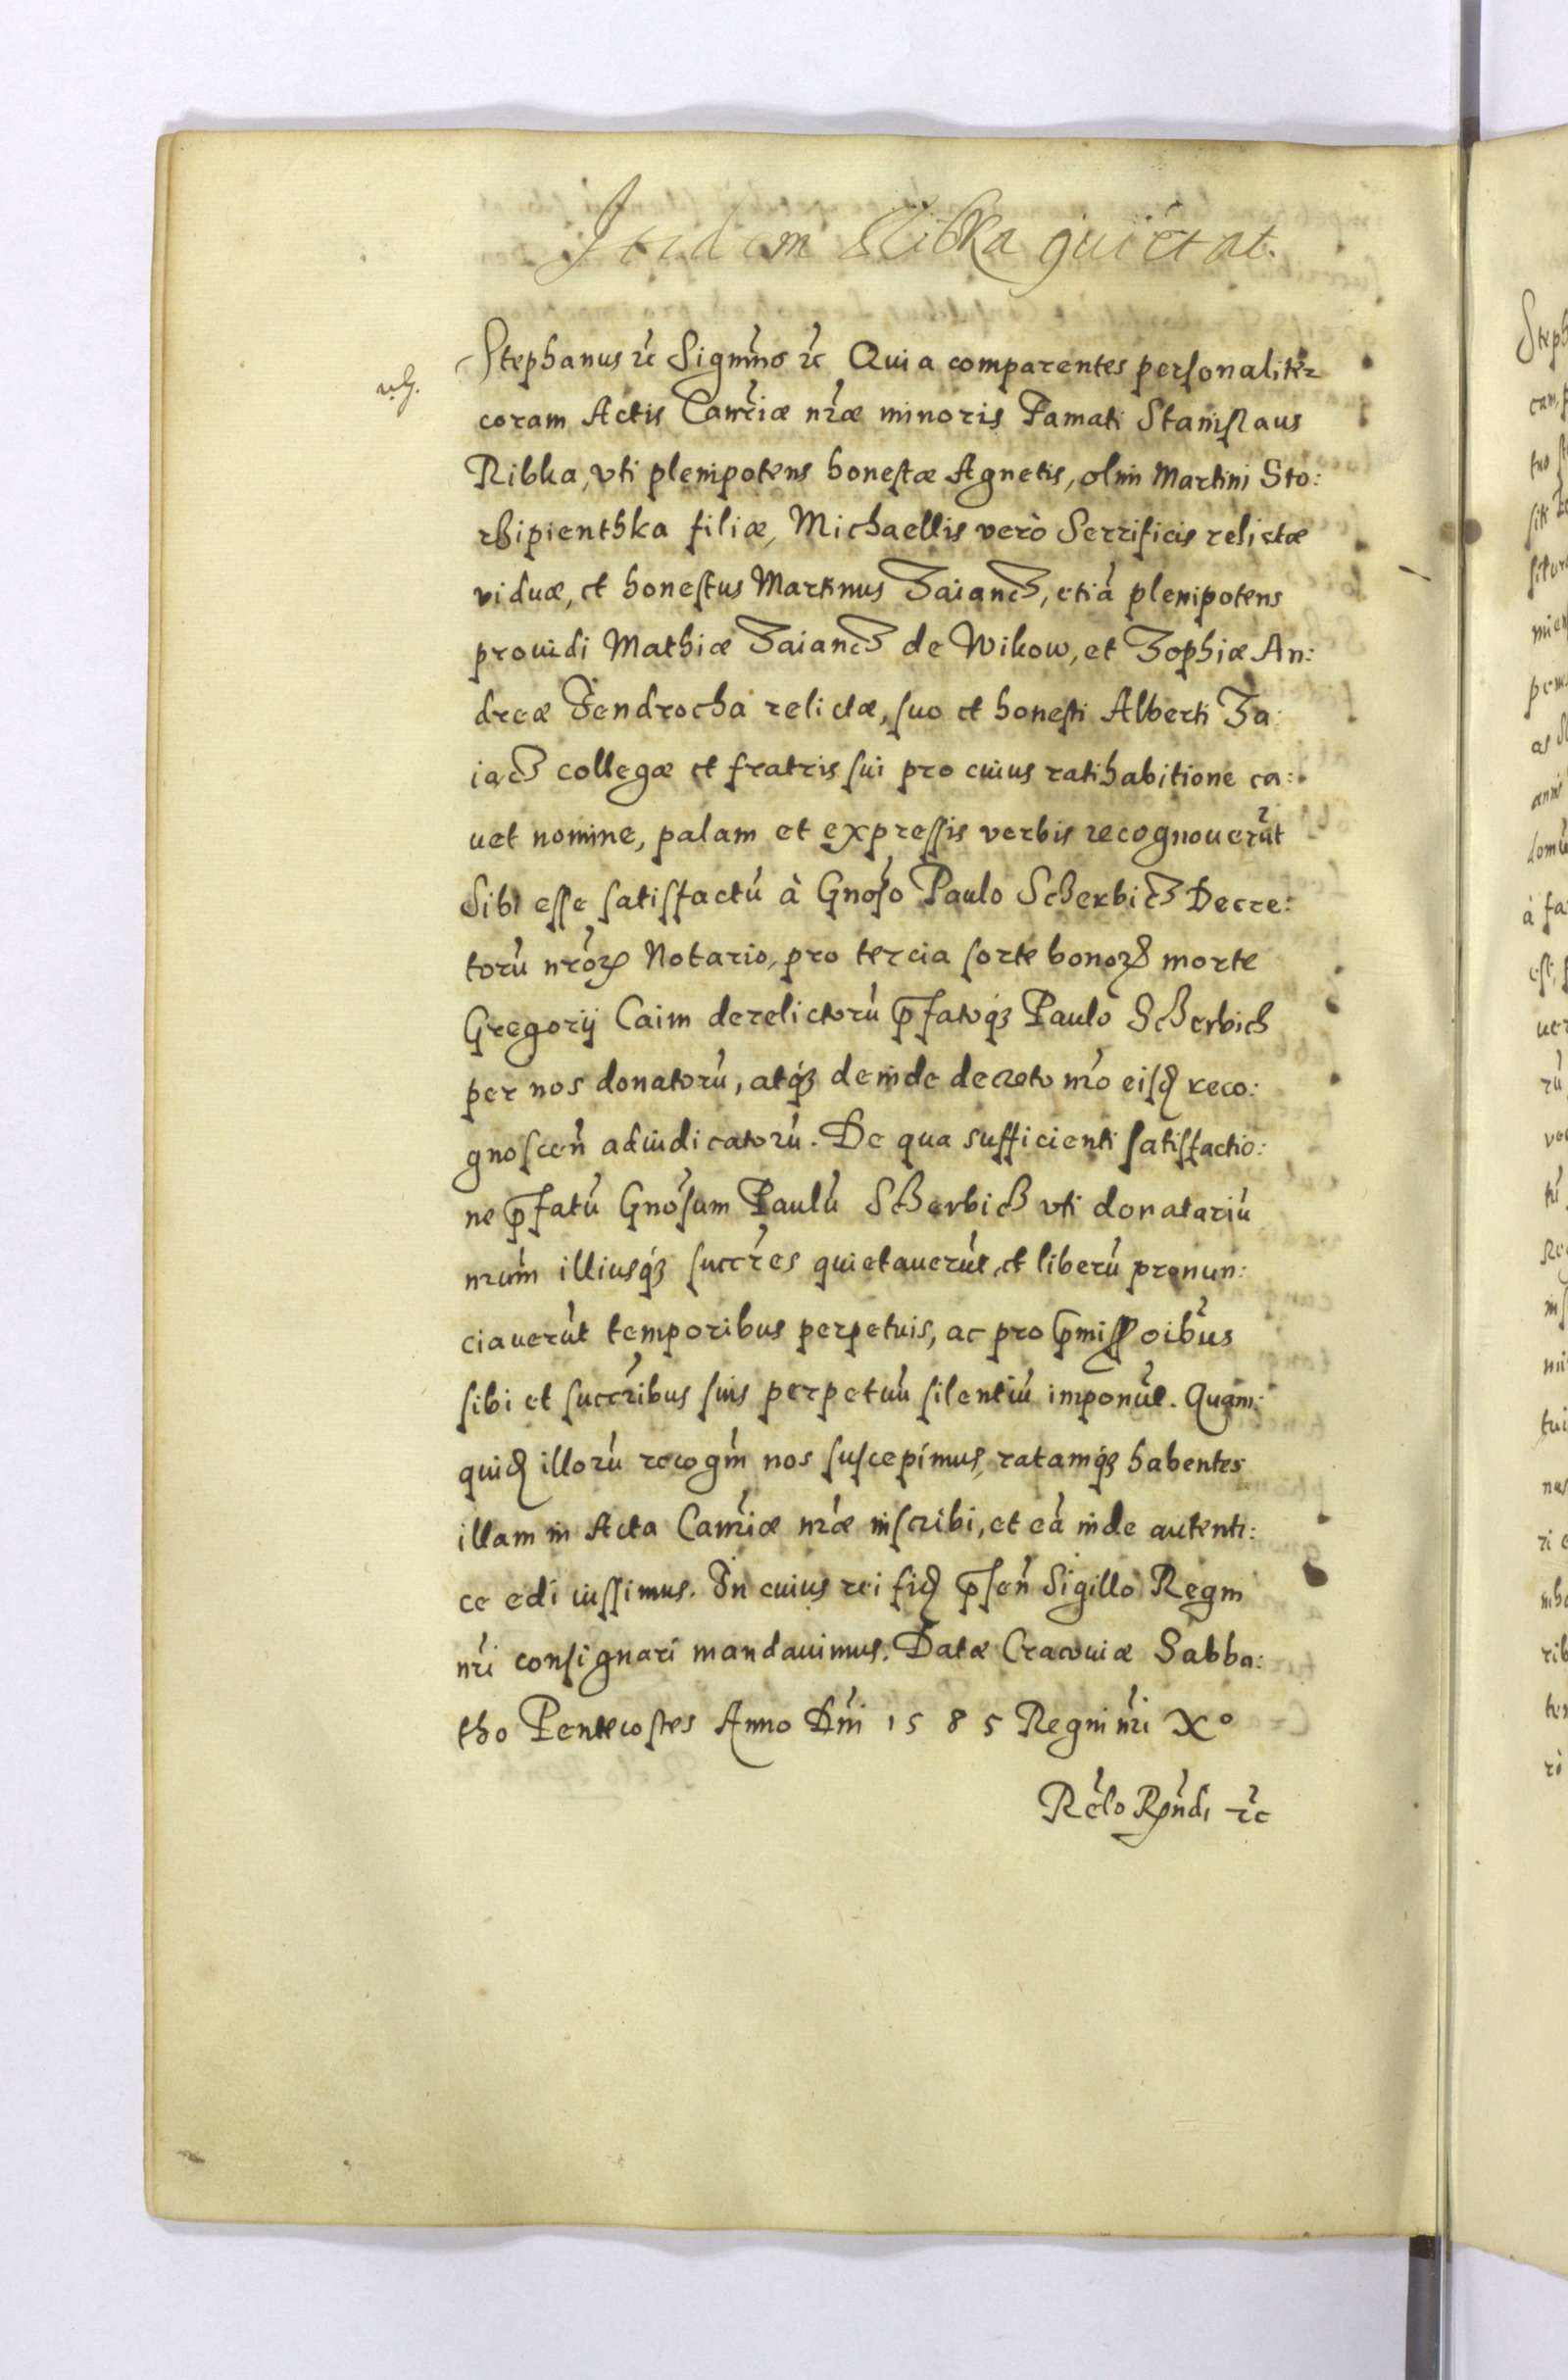 Itidem Ribka quietat.
Stephanus rc̃ Signm̃s rc̃ Quia comparentes personaliter
coram Actis Canc̃riæ nr̃æ minoris Famati Stanislaus
Ribka, vti plenipotens honestæ Agnetis, olim Martini Sto:
rhipienthka filiæ, Michaellis verò Serrificis relictæ
viduæ, et honestus Martinus Zaiancz, etiã plenipotens
prouidi Mathiæ Zaiancz de Wikow, et Zophiæ An:
dreæ Jendrocha relictæ, suo et honesti Alberti Za:
iacz collegæ et fratris sui pro cuius ratihabitione ca:
uet nomine, palam et expressis verbis recognouerũt
Sibi esse satisfactũ à Gnõso Paulo Sczerbicz Decre:
torũ nrõꝝ Notario, pro tercia sorte bonoꝝ morte
Gregorij Caim derelictorũ p̃fatoqꝫ Paulo Sczerbicz
per nos donatorũ, atqꝫ deinde decreto nr̃o eisd reco:
gnoscen̄ adiudicatorũ. De qua sufficienti satisfactio:
ne p̃fatũ Gnõsum Paulũ Sczerbicz vti donatariũ
nrũm illiusqꝫ succr̃es quietauerũt, et liberũ pronun:
ciauerũt temporibus perpetuis, ac pro p̃miss oĩbus
sibi et succr̃ibus suis perpetuũ silentiũ imponũt. Quam:
quid illorũ recogm̃ nos suscepimus, ratamqꝫ habentes
illam in Acta Canc̃riæ nr̃æ inscribi, et eã inde autenti:
ce edi iussimus. In cuius rei fid p̃sen̄ Sigillo Regni
nr̃i consignari mandauimus. Datæ Cracouiæ Sabba:
tho Pentecostes Anno Dm̃i 1585 Regni nr̃i Xº
Rẽlo Rṕndi rc̃